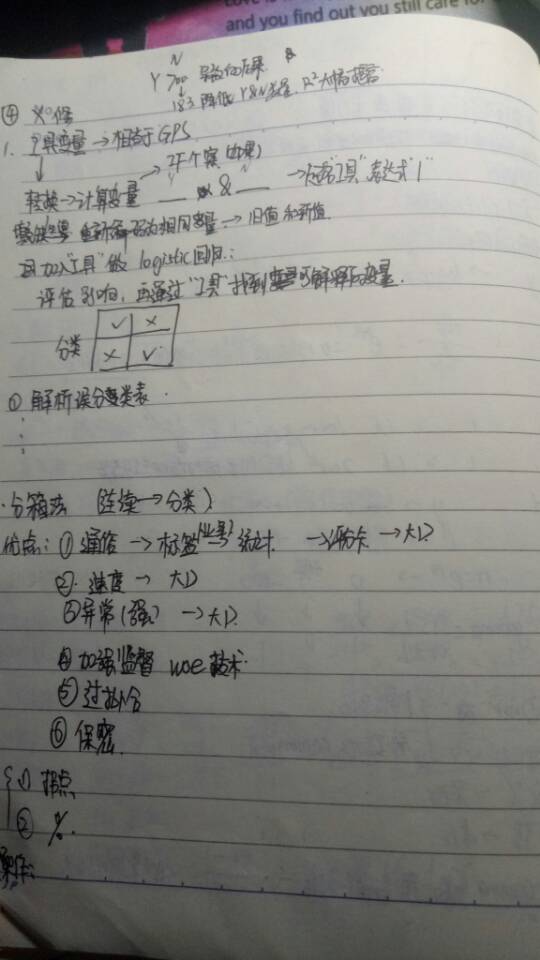 and you find out you still care for
N
Y 700 导致的结果
↓
183 降低 Y&N 差, R²大幅提高
④
1. 工具变量 → 相当于GPS
↓
转换→计算变量 & → "工具"表达式"1"
重新编码为相同变量 → 旧值和新值
因加入"工具"做 logistic回归:
评估影响, 再通过"工具"找到可解释的变量.
分类
✓ ×
× ✓
① 解析误分类表.
⋮
·分箱法 (连续→分类)
优点: ① 通俗 → 标签(业务) 统计 → 评分卡 → 大D
② 速度 → 大D
③ 异常(强) → 大D
④ 加强监督 woe技术
⑤ 过拟合
⑥ 保密
① 拐点
② %.
操作: